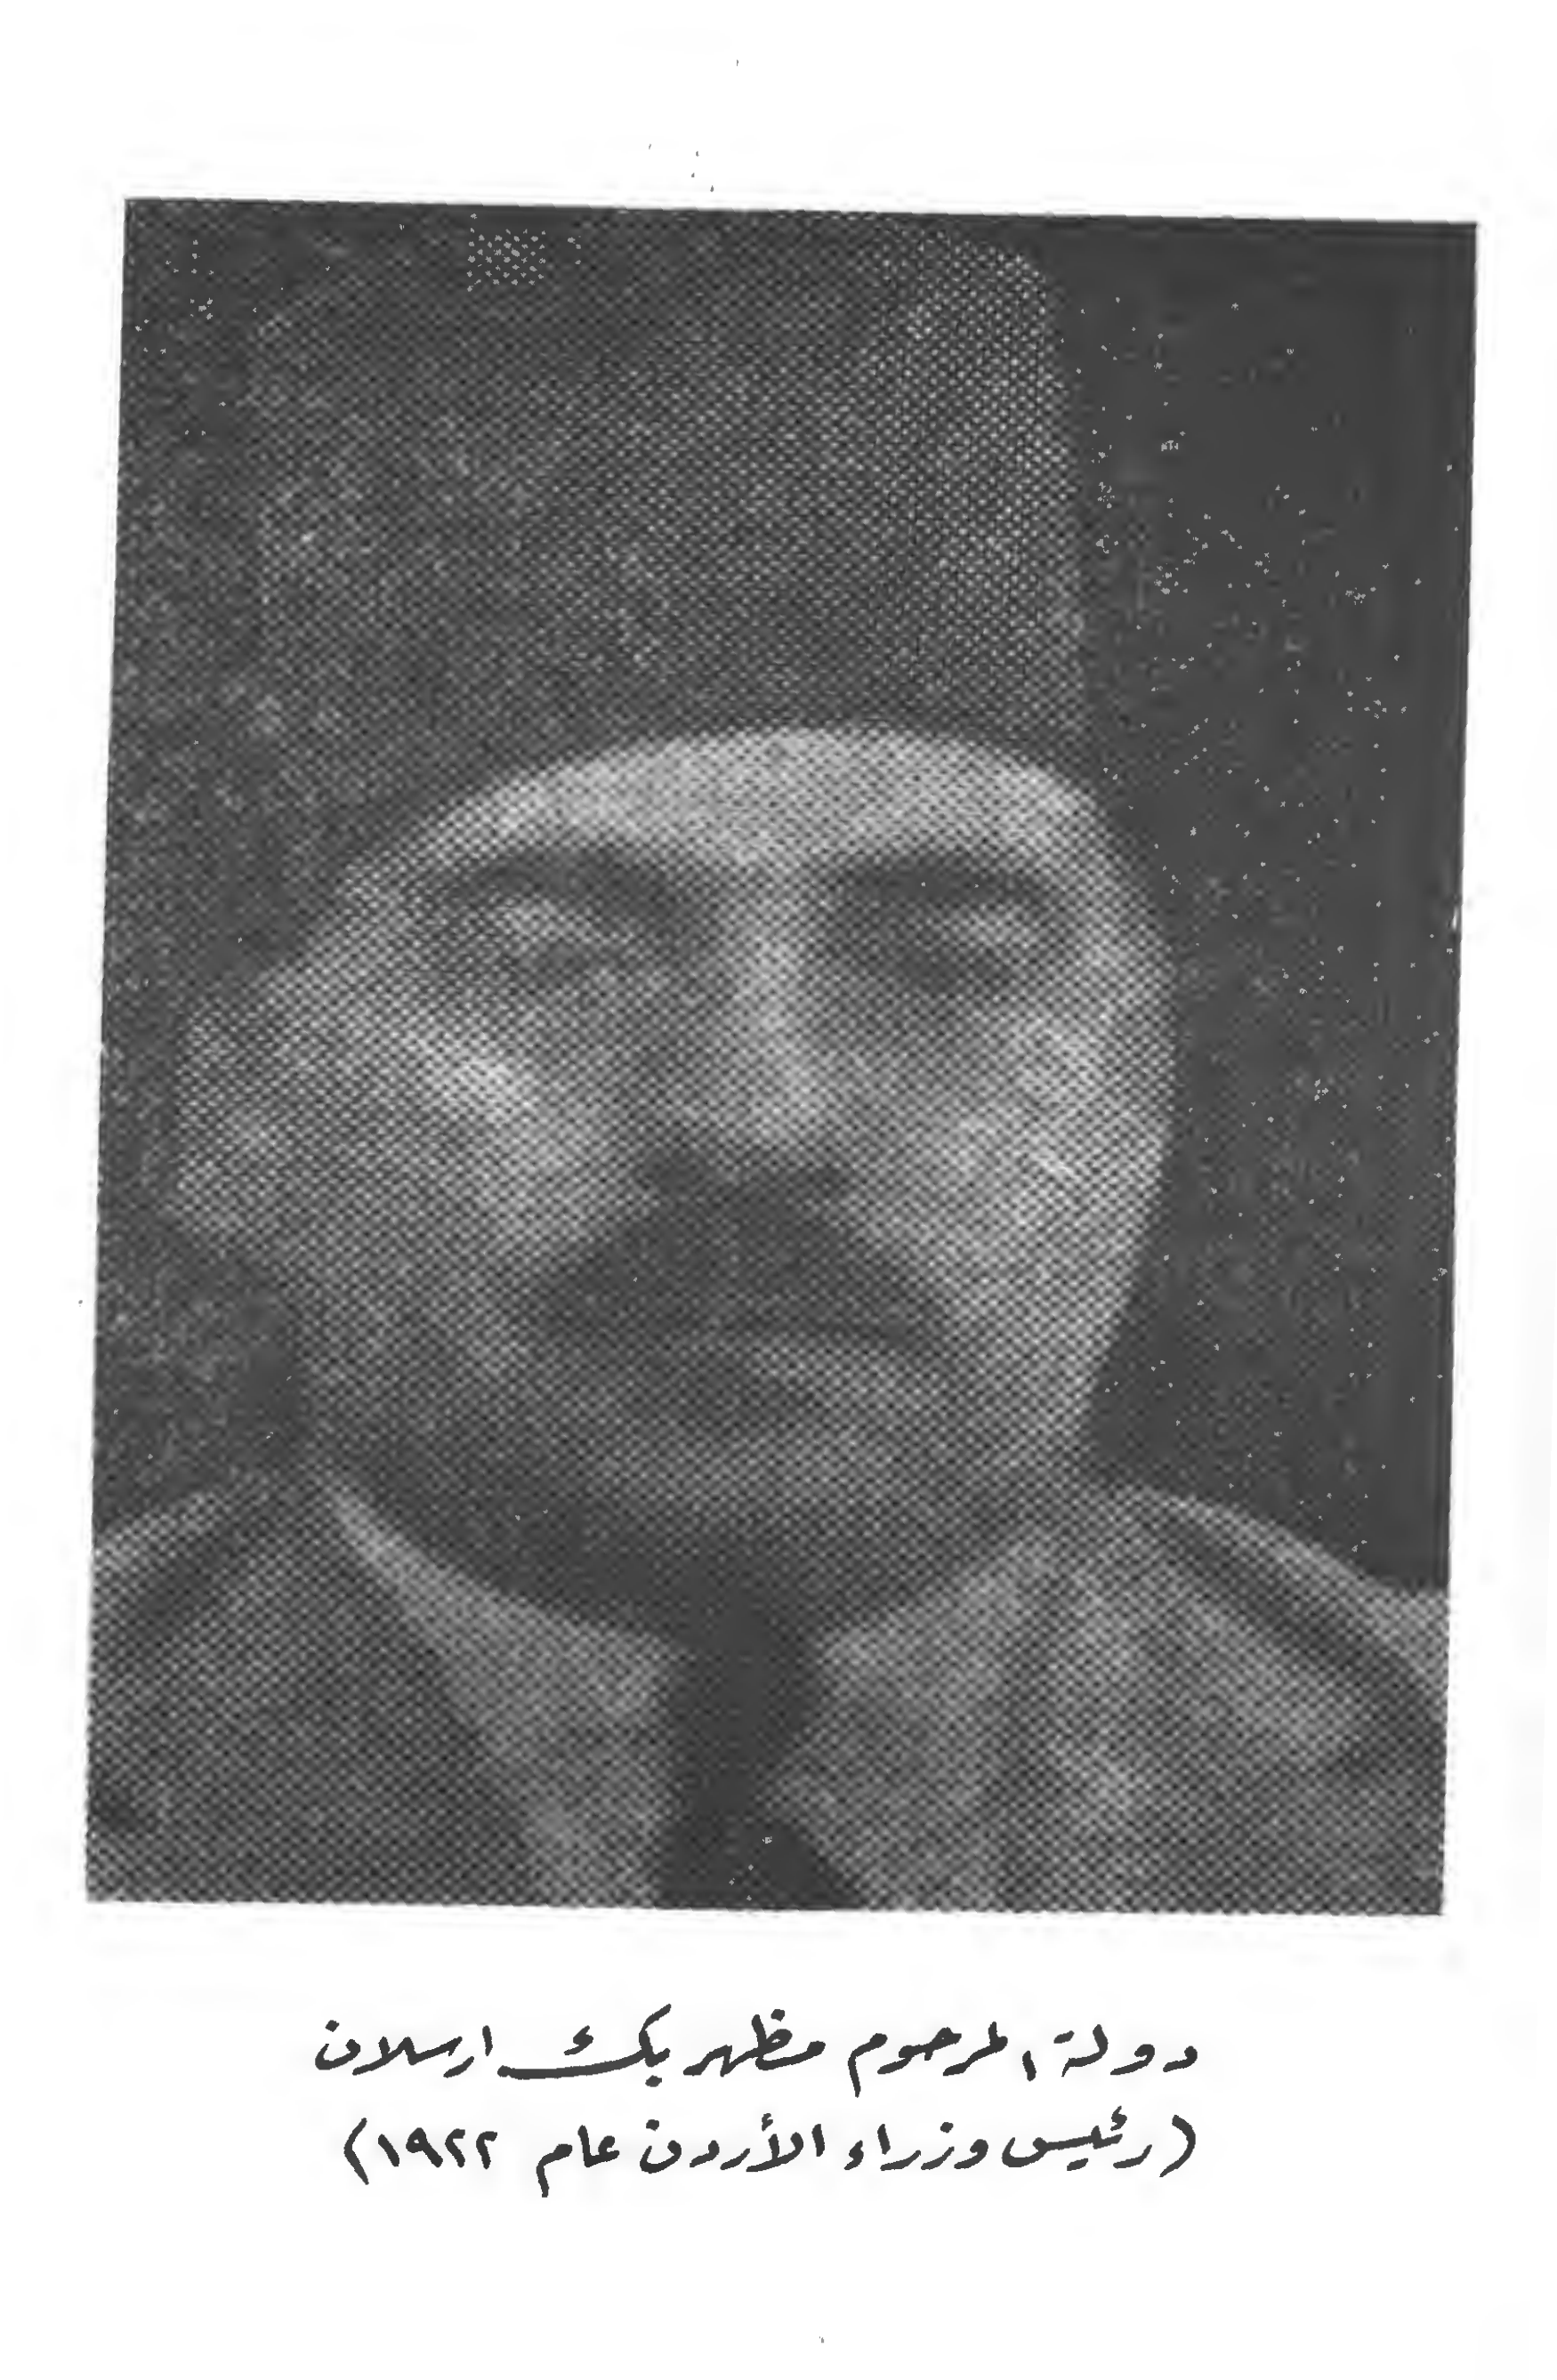 دولة المرحوم مظهر بك ارسلان
(رئيس وزراء الأردن عام ١٩٢٢)